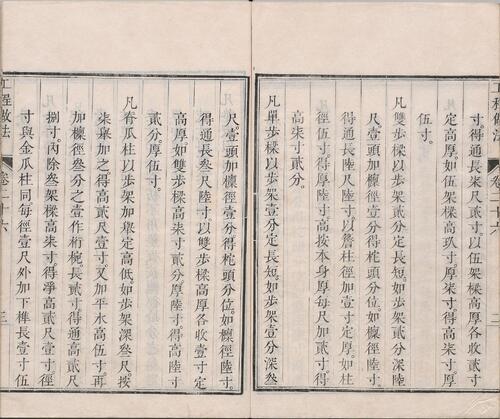 工程做法 卷二十六 二
寸得通長柒尺貳寸以伍架樑高厚各收貳寸
定高厚如伍架樑高玖寸厚柒寸得高柒寸厚
伍寸
凡雙步樑以步架貳分定長短如步架貳分深陸
尺壹頭加檁徑壹分得柁頭分位如檁徑陸寸
得通長陸尺陸寸以簷柱徑加壹寸定厚如柱
徑伍寸得厚陸寸高按本身厚每尺加貳寸得
高柒寸貳分
凡單步樑以步架壹分定長短如步架壹分深叁
尺壹頭加檁徑壹分得柁頭分位如檁徑陸寸
得通長叁尺陸寸以雙步樑高厚各收壹寸定
高厚如雙步樑高柒寸貳分厚陸寸得高陸寸
貳分厚伍寸
凡脊瓜柱以步架加舉定高低如步架深叁尺按
柒舉加之得高貳尺壹寸又加平水高伍寸再
加檁徑叁分之壹作桁椀長貳寸得通高貳尺
捌寸內除叁架樑高柒寸得淨高貳尺壹寸
寸與金瓜柱同每徑壹尺外加下榫長壹寸伍
工程做法 卷二十六 三